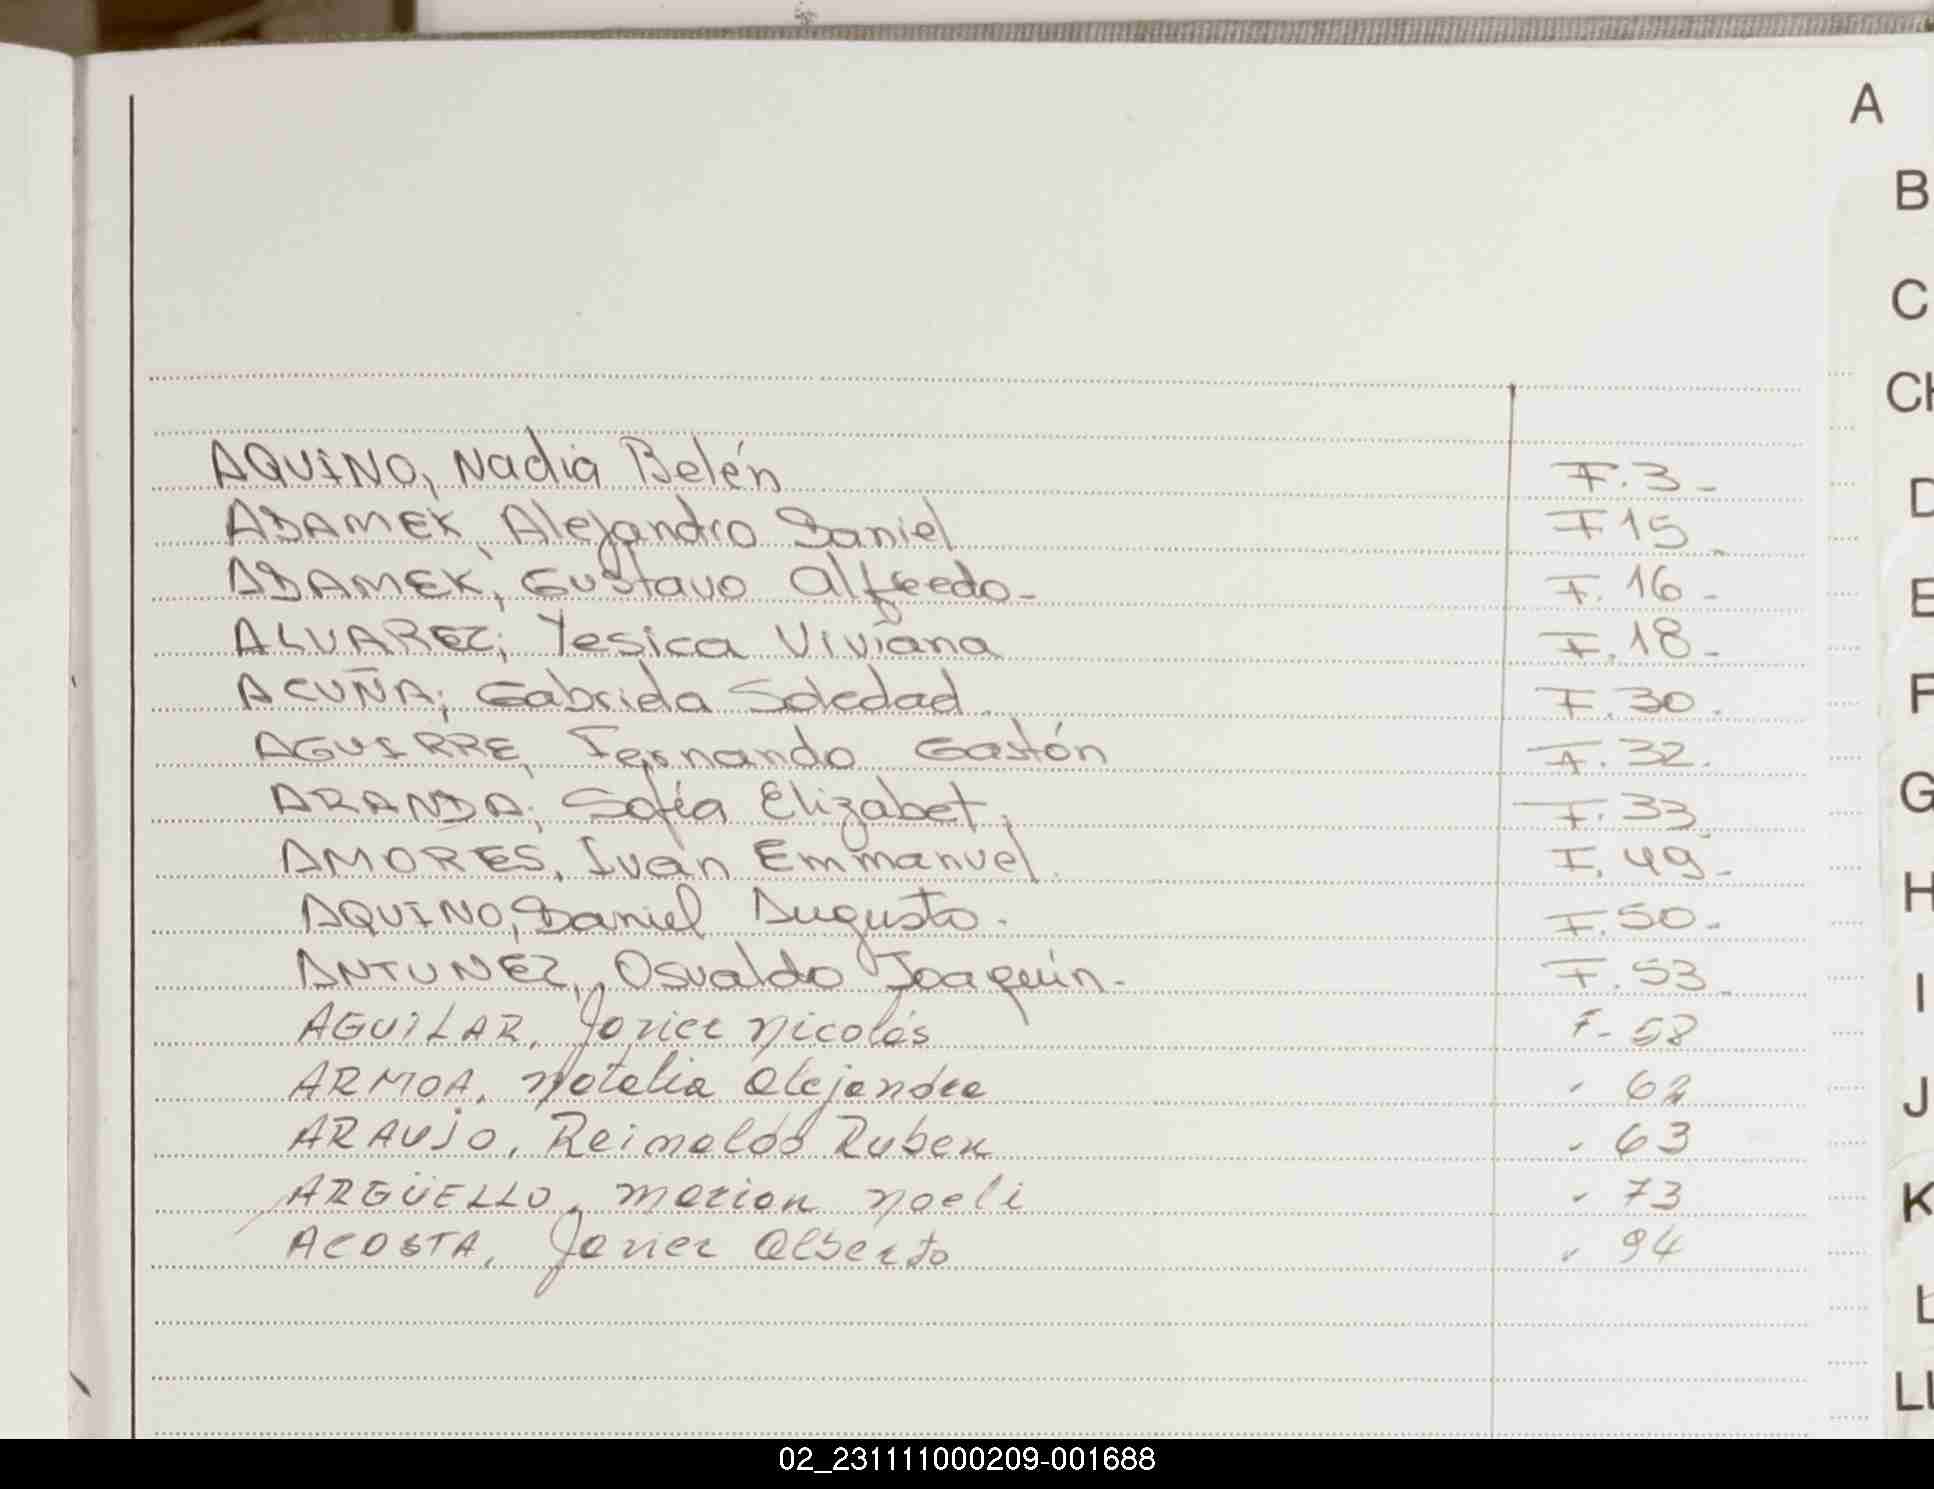 A
B
C
CH
D
E
F
G
H
I
J
K
L
LL
AQUINO, Nadia Belén F. 3 -
ADAMEK, Alejandro Daniel F 15 -
ADAMEK, Gustavo Alfredo - F. 16 -
ALVAREZ; Yesica Viviana F. 18 -
ACUÑA; Gabriela Soledad. F. 30.
AGUIRRE, Fernando Gastón F. 32.
ARANDA; Sofía Elizabet. F. 33 -
AMORES, Ivan Emmanuel. F. 49 -
AQUINO, Daniel Augusto. F. 50 -
ANTUNEZ, Osvaldo Joaquín. - F. 53 -
AGUILAR, Javier Nicolás F - 58
ARMOA, Natalia Alejandra " 62
ARAUJO, Reinaldo Ruben " 63
ARGÜELLO, Marion Noeli " 73
ACOSTA, Javier Alberto " 94
02_231111000209-001688